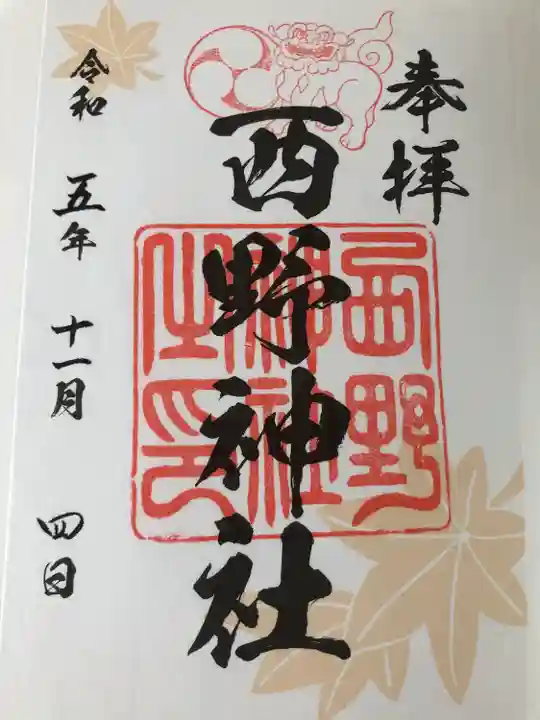 奉拝
西野神社
西野
神社
之印
令和 五年 十一月 四日